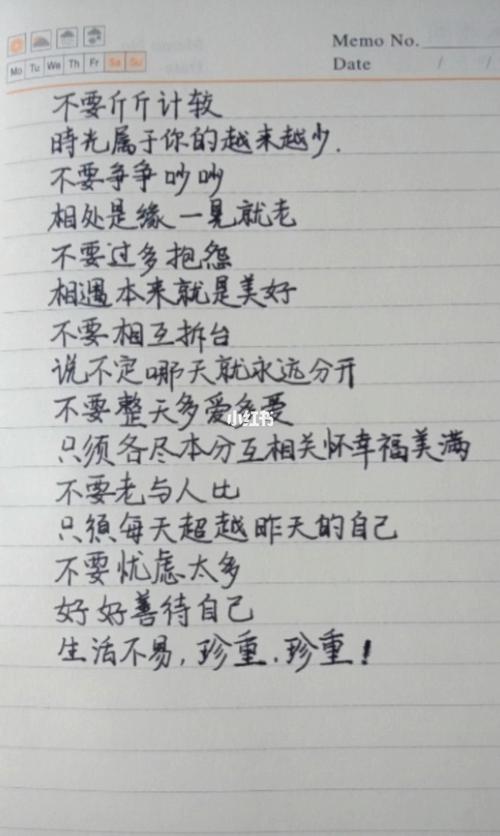 Memo No.
Mo Tu We Th Fr Sa Su
Date / /
不要斤斤计较
時光属于你的越来越少.
不要争争吵吵
相处是缘一晃就老
不要过多抱怨
相遇本来就是美好
不要相互拆台
说不定哪天就永远分开
不要整天多爱多愛
小红书
只须各尽本分互相关怀幸福美满
不要老与人比
只須每天超越昨天的自己
不要忧虑太多
好好善待自己
生活不易,珍重.珍重!